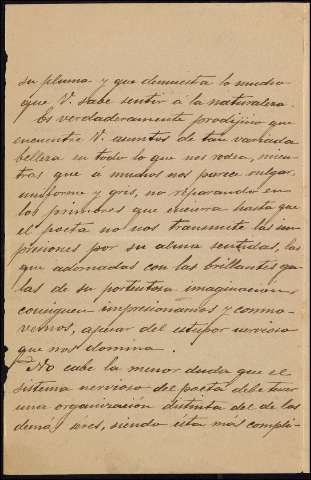 su pluma y que demuestra lo mucho
que V. sabe sentir á la naturaleza.
Es verdaderamente prodijioso que
encuentre V. asuntos de tan variada
belleza en todo lo que nos rodea, mien-
tras que á muchos nos parece vulgar,
uniforme y gris, no reparando en
los primores que encierra hasta que
el poeta no nos transmite las im-
presiones por su alma sentidas, las
que adornadas con las brillantes ga-
las de su portentosa imaginacion,
consiguen impresionarnos y conmo-
vernos, apesar del estupor nervioso
que nos domina.
No cabe la menor duda que el
sistema nervioso del poeta debe tener
una organización distinta del de los
demás séres, siendo ésta más compli-